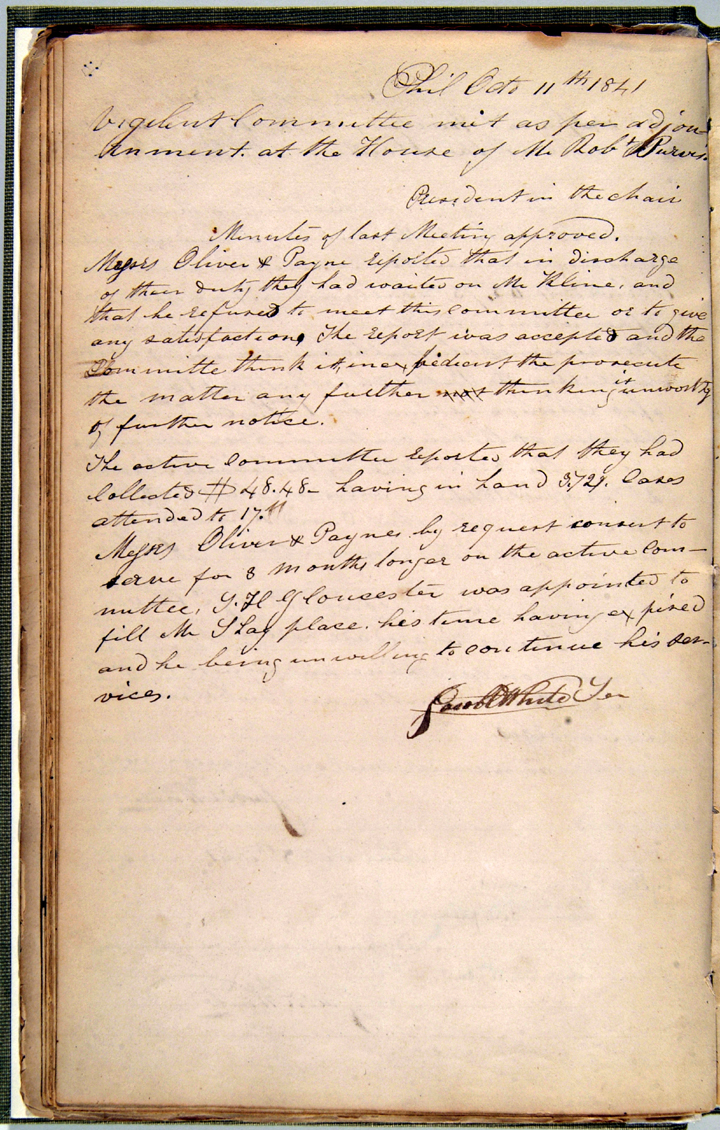 Phil Octo 11th 1841
Vigilent Committee met as per adjou
rnment. at the House of Mr Robt Purvis
President in the chair
Minutes of last Meeting approved.
Messrs Oliver & Payne reported that in discharge
of their duty they had waited on Mr Kline, and
that he refused to meet this committee or to give
any satisfaction, The report was accepted and the
Committe think it, inexpedient the prosecute
the matter any further not thinking it unworthy
of further notice.
The active Committee reported that they had
Collected $ 48.48 – having in hand 3.72½. Cases
attended to 17.
Messrs Oliver & Paynes by request consent to
serve for 3 months longer on the active Com–
mittee, S. H Gloucester was appointed to
fill Mr Shay place. his time having expired
and he being unwilling to continue his ser–
vices.
Jacob C White Sec